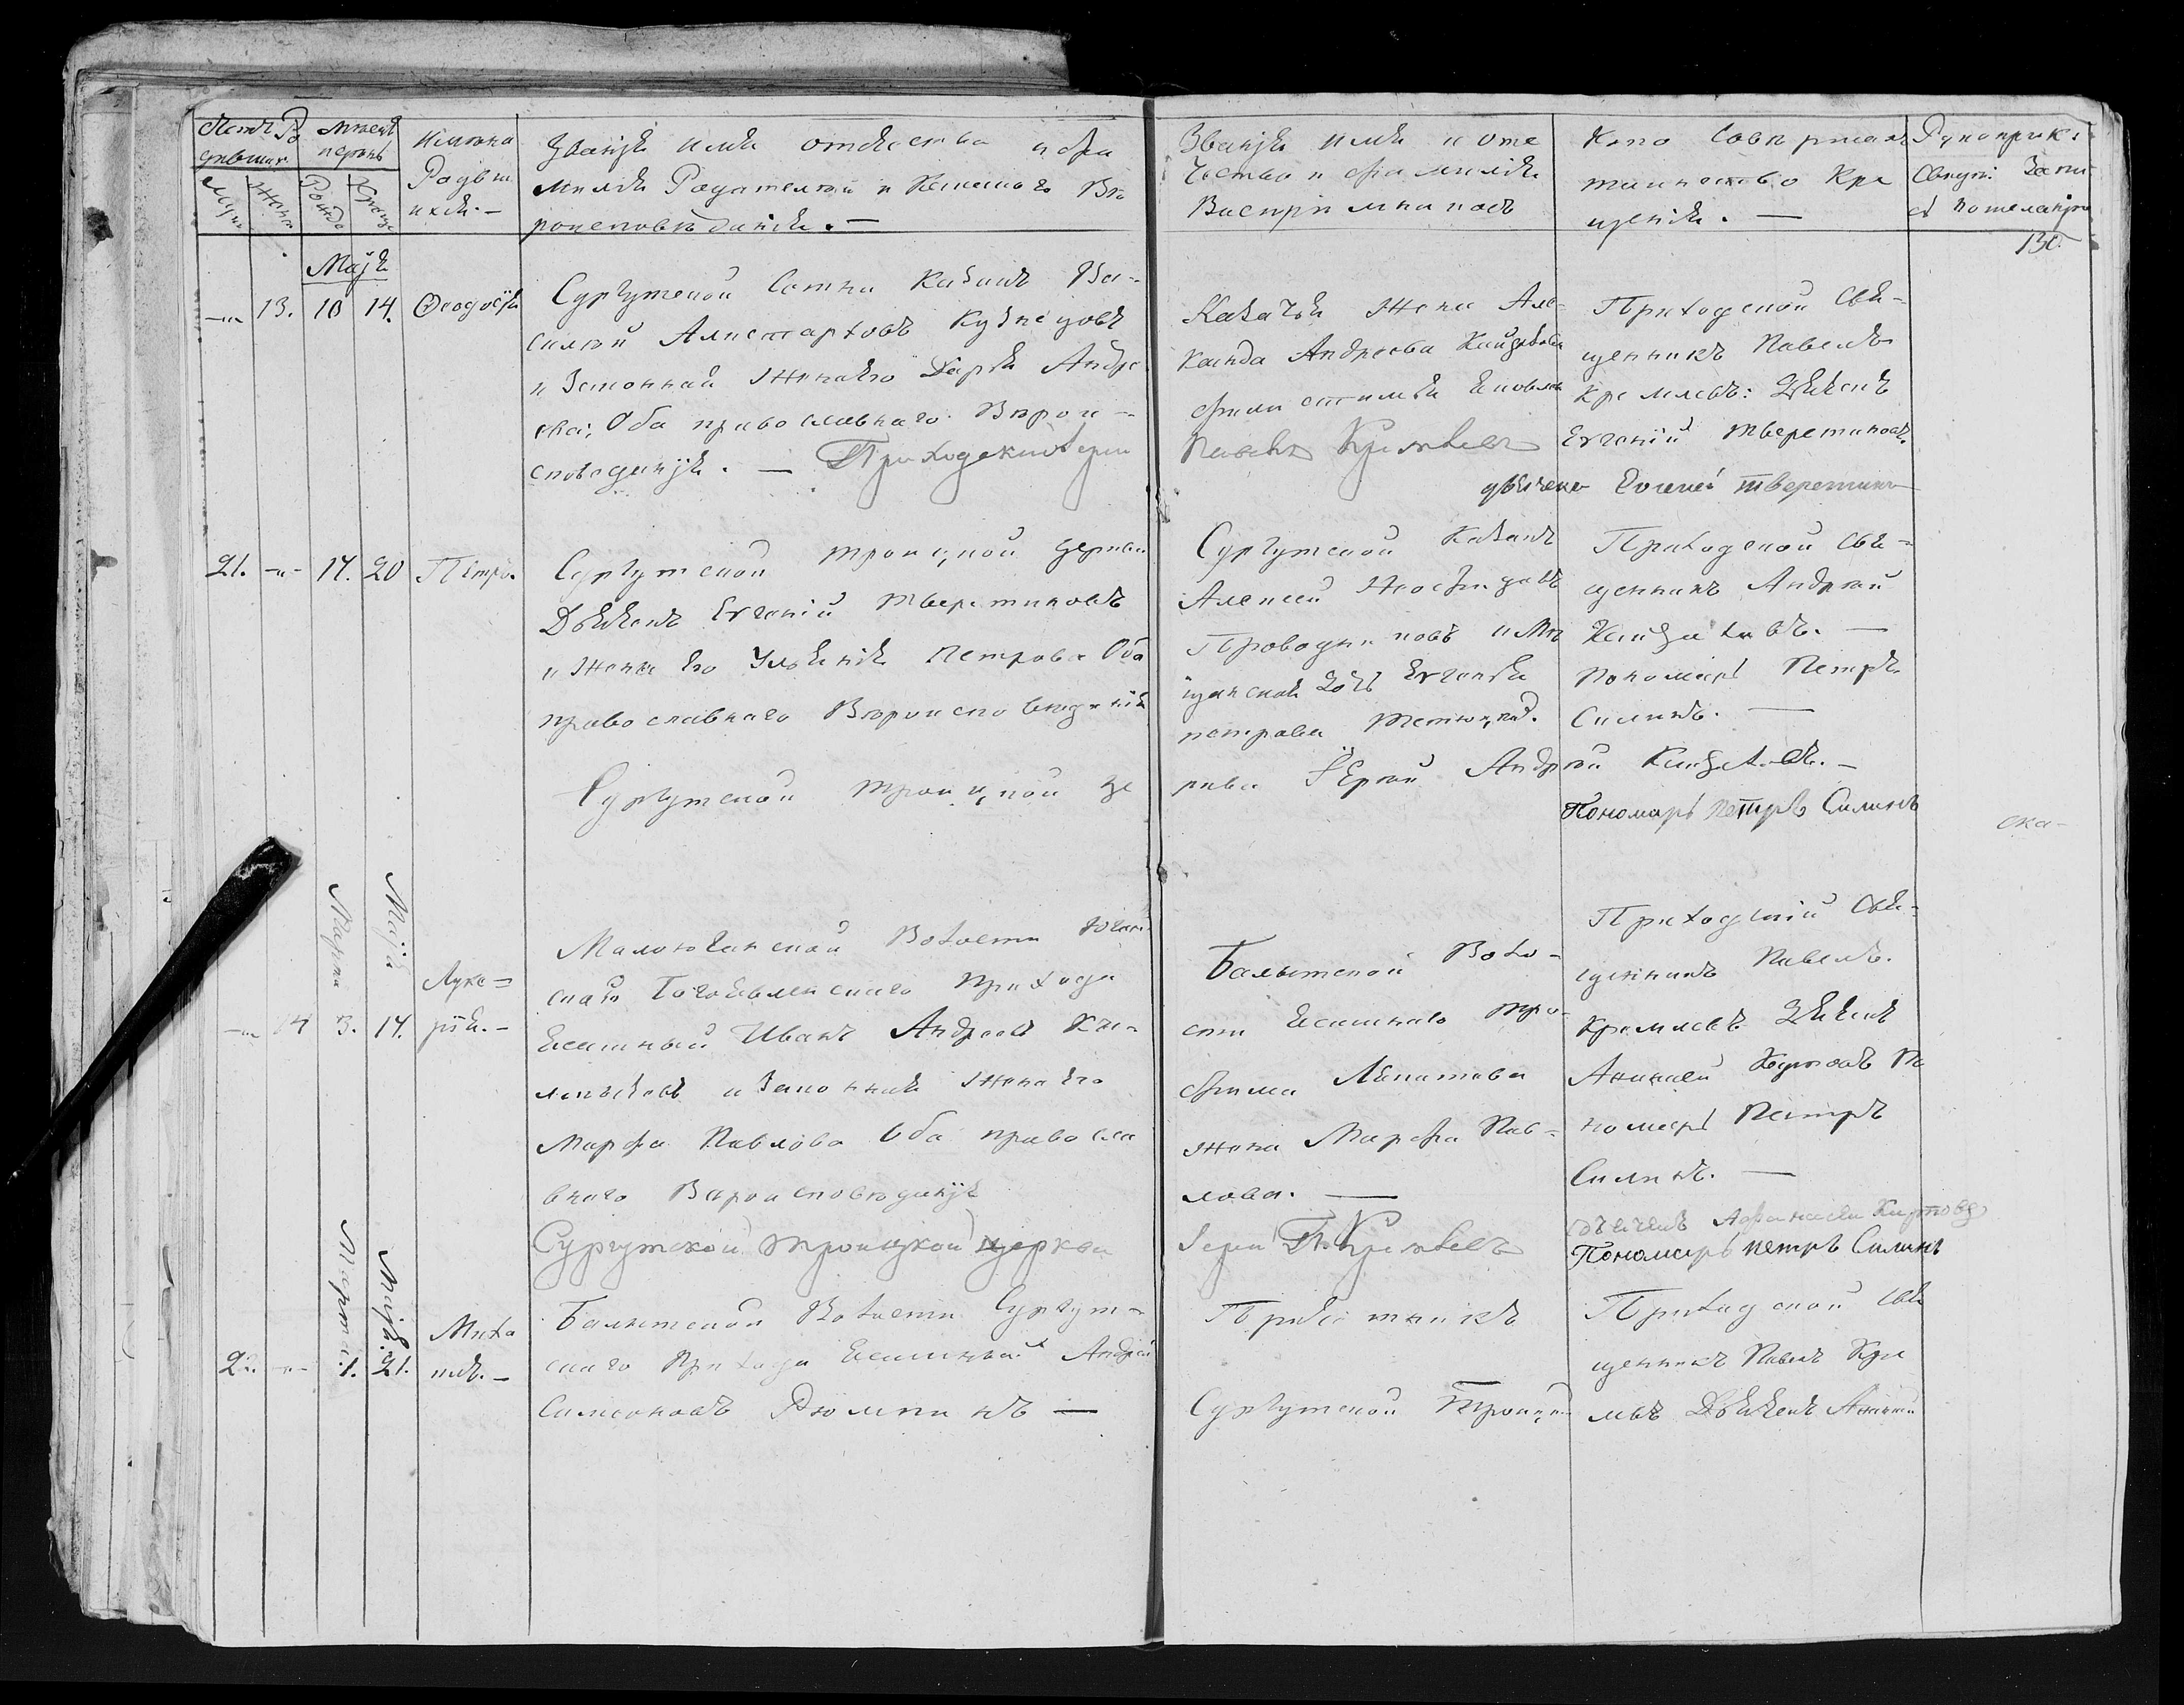 Счетъ Ро
дившихъ
Мужи
Жени
Месецъ
и день
Рожд
Крещ
имяна
Родивш
ихся. —
Званія имя отчества и фа
милія Родителей и Какого Вѣ
роисповѣданія. —
Званія имя и оте
чество и фамилія
Воспріемниковъ
Кто Совершалъ
таинство Кре
щенія. —
Рукоприк
Свидѣт: Запи
си по желанію
130
Маія
—"— 13. 10 14. Ѳеодосія
Сургутской Сотни Казакъ Ва-
силій Алистарховъ Кузнецовъ
и Законная Жена его Дарья Андре
ева; Оба православнаго Вѣрои-
споведанія. — Приходскій Іерей
Казачья Жена Але
ксандра Андреева Кайдалова
Павелъ Кремлевъ
Приходской Свя-
щенникъ Павелъ
Кремлевъ: Дьячекъ
Евгеній Тверетиновъ.
дьячекъ Евгеній Тверетинъ
21. -"- 17. 20 Петръ.
Сургутской Троицкой церкви
Дьячекъ Евгеній Тверетиновъ
и Жена Его Ульянія Петрова Оба
православнаго Вѣроисповѣданія
Сургутской Троицкой це
Сургутской Казакъ
Алексей
Проводниковъ и Мѣ
щанская Дочь Евгенья
петрова
ркви Іерей Андрей Кайдаловъ. —
Приходской Свя-
щенникъ Андрей
Кайдаловъ. —
Пономарь Петръ
Силинъ. —
Пономарь Петръ Силинъ
ска-
Марта
Маія
—"— 14 3. 14.
Луке=
рія. —
Малоюганской Волости Юган
скаго Богоявленскаго Прихода
Ясашный Иванъ Андреевъ Ка
и Законная Жена Его
Марфа Павлова Оба правосла
внаго Вѣроисповѣданія
Сургутской Троицкой церкви
Балытской Воло-
сти Ясашнаго Тро-
фима Лѣпатова
жена Марфа Пав=
лова. —
Іерей П. Кремлевъ
Приходской Свя-
щенникъ Павелъ.
Кремлевъ Дьячекъ
По
номарь Петръ
Силинъ. —
Дьячекъ
Пономарь Петръ Силинъ
Марта
Маія
22. -"- 1. 21.
Миха
илъ. —
Балытской Волости Сургут-
скаго Прихода Ясашный Андрей
Симеоновъ Рюмкинъ —
Сургутской Троицкой
Приходской Свя
щенникъ Павелъ Кре
млевъ Дьячекъ